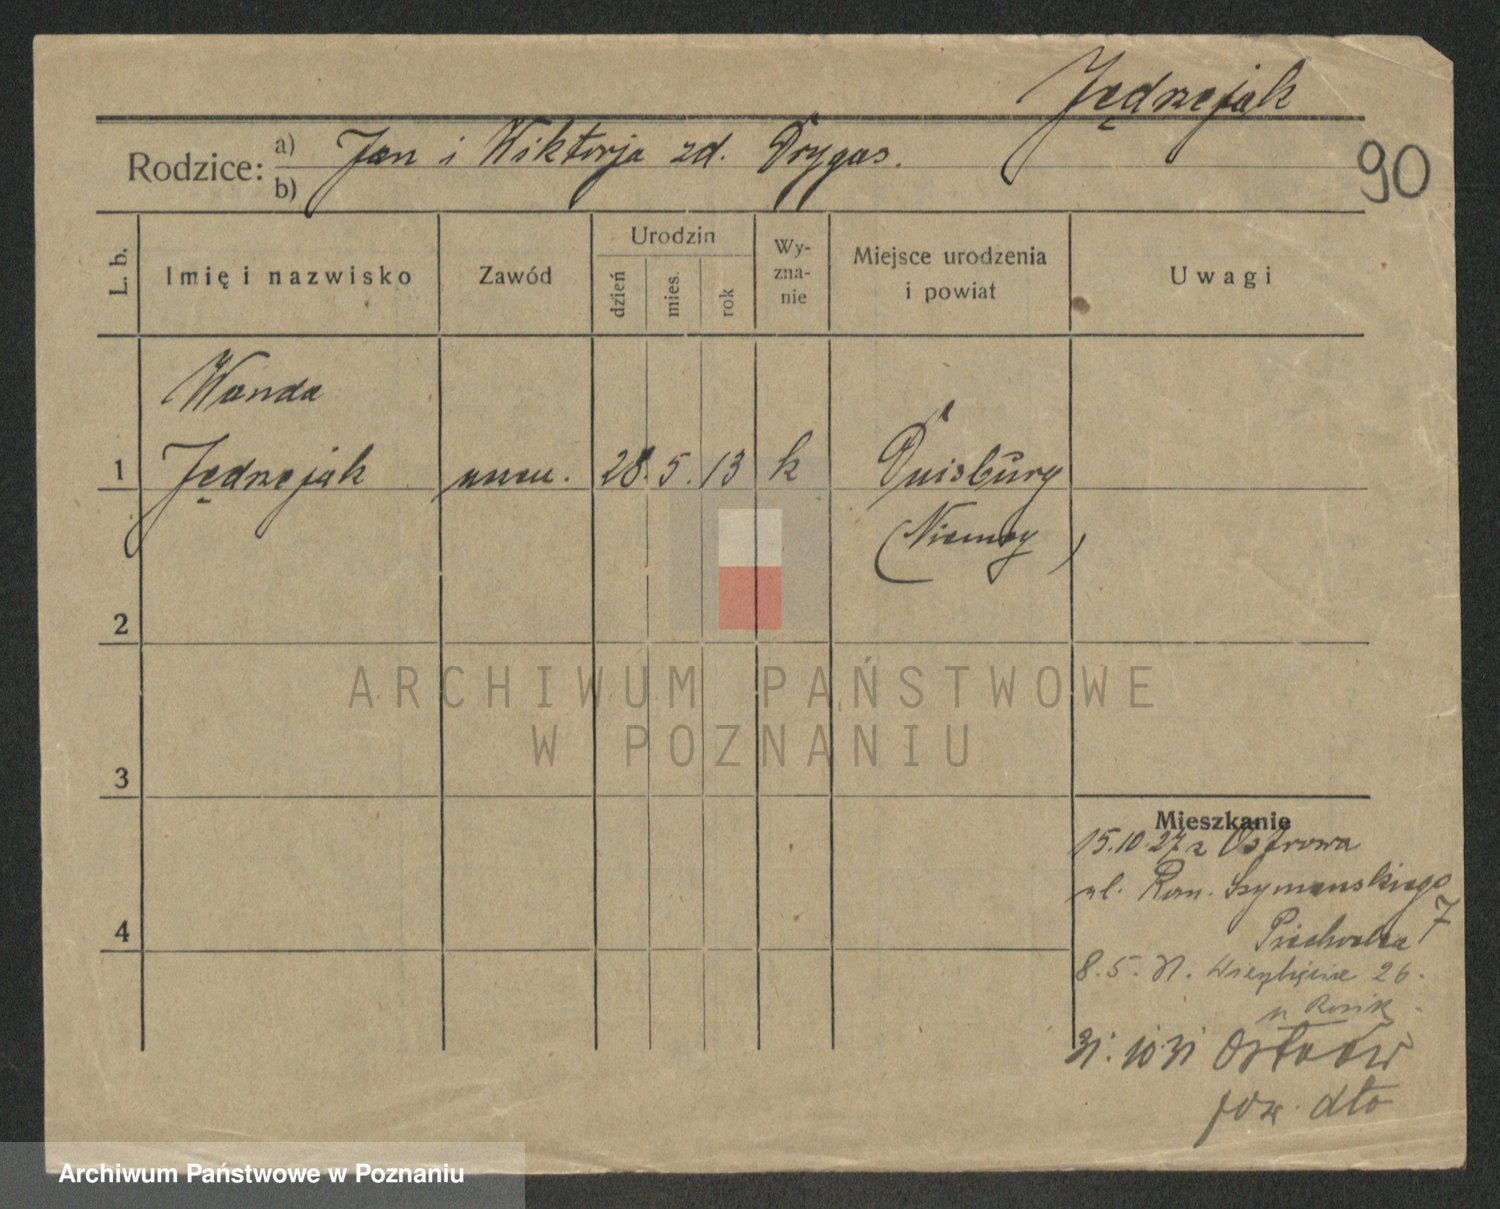 Jędrzejak
Rodzice: a) Jan i Wiktorja zd. Drygas.
b)
90
L. b.
Imię i nazwisko
Zawód
Urodzin
dzień
mies.
rok
Wy-
zna-
nie
Miejsce urodzenia
i powiat
Uwagi
Wanda
1 Jędrzejak uczen. 28. 5. 13 k Duisburg
(Niemcy)
2
ARCHIWUM PAŃSTWOWE
W POZNANIU
3
Mieszkanie
15.10.27 z Ostrowa
ul. Rom. Szymańskiego
7
4
8.5.31. 26.
u
31.10.31 Ostrów
pow. dto
Archiwum Państwowe w Poznaniu